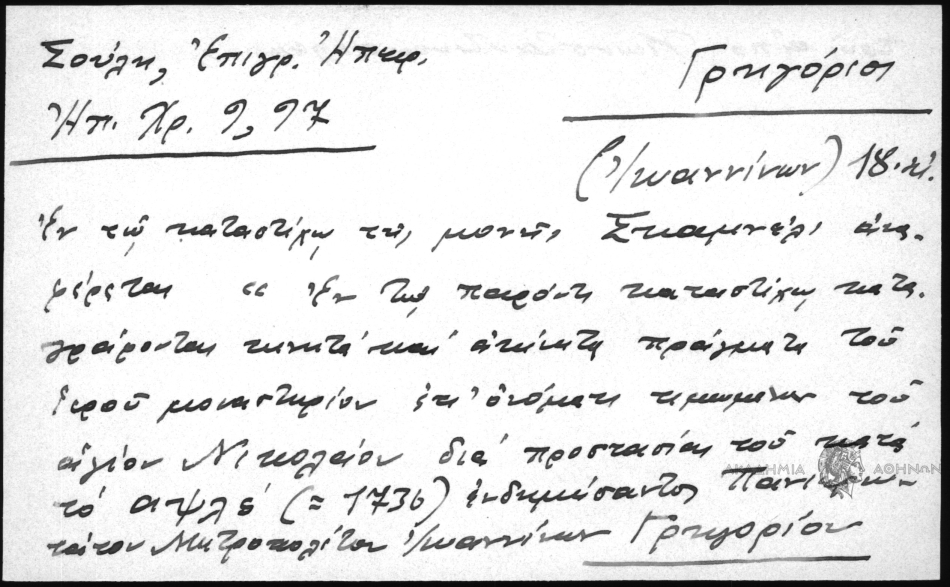 Σούλη, Ἐπιγρ. Ἠπειρ.
Ἠπ. Χρ. 9, 97
Γρηγόριος
(Ἰωαννίνων) 18. αἰ.
Ἐν τῷ καταστίχῳ τῆς μονῆς Σκαμνέλι ἀνα-
φέρεται " Ἐν τῷ παρόντι καταστίχῳ κατα-
γράφονται κινητά καί ἀκίνητα πράγματα τοῦ
ἱεροῦ μοναστηρίου ἐπ' ὀνόματι τιμωμένου τοῦ
ἁγίου Νικολάου διά προστασίας τοῦ κατά
τό αψλς (= 1736) ἐνδημήσαντος Πανιερω-
τάτου Μητροπολίτου Ἰωαννίνων Γρηγορίου
ΑΚΑΔΗΜΙΑ ΑΘΗΝΩΝ